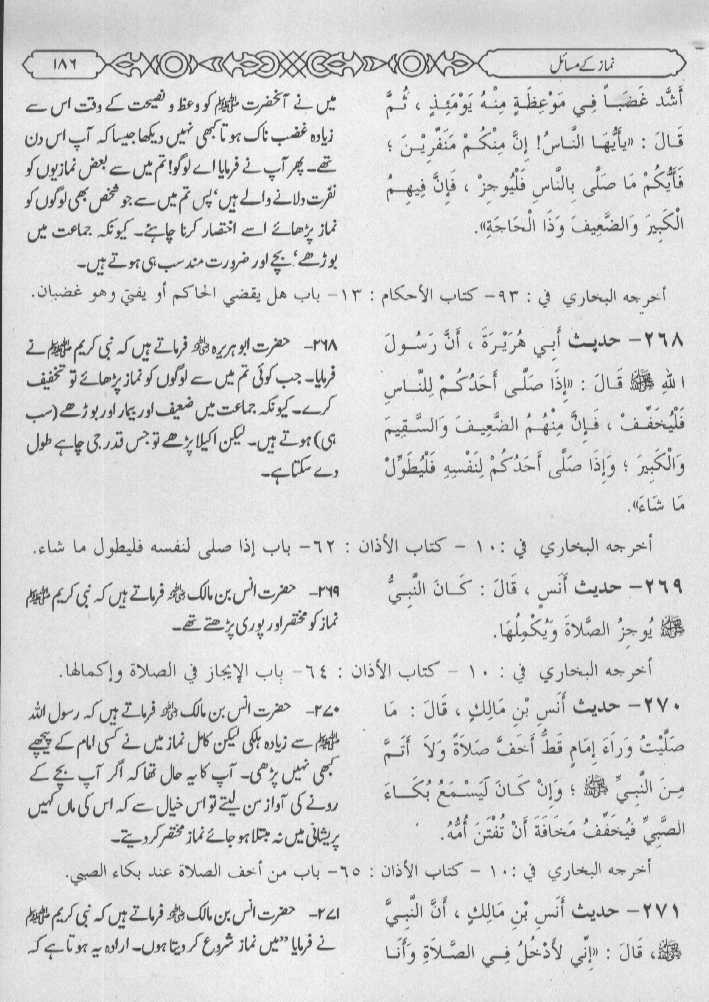 نماز کے مسائل
۱۸۶
أَشَّد غَضَباً فِي مَوْعِظَةٍ مِنْهُ يَوْمَئِذٍ ، ثُمَّ
قَالَ : «يأَيُّهَا النَّاسُ! إِنَّ مِنْكُمْ مَنَفِّرِيْنَ ؛
فَأَيُّكُمْ مَا صَلَّى بِالنَّاسِ فَلْيُوجِزْ ، فَإِنَّ فِيهِمُ
الْكَبِيرَ وَالضَّعِيفَ وَذَا الْحَاجَةِ».
میں نے آنحضرت ﷺ کو وعظ و نصیحت کے وقت اس سے
زیادہ غضب ناک ہوتا کبھی نہیں دیکھا جیسا کہ آپ اس دن
تھے۔ پھر آپ نے فرمایا اے لوگو! تم میں سے بعض نمازیوں کو
نفرت دلانے والے ہیں، پس تم میں سے جو شخص بھی لوگوں کو
نماز پڑھائے اسے اختصار کرنا چاہئے۔ کیونکہ جماعت میں
بوڑھے، بچے اور ضرورت مند سب ہی ہوتے ہیں۔
أخرجه البخاري في : ٩٣- كتاب الأحكام : ١٣- باب هل يقضي الحاكم أو يفتي وهو غضبان.
٢٦٨- حديث أَبِي هُرَيْرَةَ ، أَنَّ رَسُولَ
اللهِ ﷺ قَالَ : «إِذَا صَلَّى أَحَدُكُمْ لِلنَّاسِ
فَلْيُخَفِّفْ ، فَإِنَّ مِنْهُمُ الضَّعِيفَ وَالسَّقِيمَ
وَالْكَبِيرَ ؛ وَإِذَا صَلَّى أَحَدُكُمْ لِنَفْسِهِ فَلْيُطَوِّلْ
مَا شَاءَ».
۲۶۸- حضرت ابو ہریرہ رضی اللہ عنہ فرماتے ہیں کہ نبی کریم ﷺ نے
فرمایا۔ جب کوئی تم میں سے لوگوں کو نماز پڑھائے تو تخفیف
کرے۔ کیونکہ جماعت میں ضعیف اور بیمار اور بوڑھے (سب
ہی) ہوتے ہیں۔ لیکن اکیلا پڑھے تو جس قدر جی چاہے طول
دے سکتا ہے۔
أخرجه البخاري في : ١٠ - كتاب الأذان : ٦٢- باب إذا صلى لنفسه فليطول ما شاء.
٢٦٩- حديث أَنَسٍ ، قَالَ : كَانَ النَّبِيُّ
ﷺ يُوجِزُ الصَّلاَةَ وَيُكْمِلُهَا.
۲۶۹- حضرت انس بن مالک رضی اللہ عنہ فرماتے ہیں کہ نبی کریم ﷺ
نماز کو مختصر اور پوری پڑھتے تھے۔
أخرجه البخاري في : ١٠ - كتاب الأذان : ٦٤- باب الإيجاز في الصلاة وإكمالها.
٢٧٠- حديث أَنَسِ بْنِ مَالِكٍ ، قَالَ : مَا
صَلَّيْتُ وَرَاءَ إِمَامٍ قَطُّ أَخَفَّ صَلاَةً وَلاَ أَتَمَّ
مِنَ النَّبِيِّ ﷺ ؛ وَإِنْ كَانَ لَيَسْمَعُ بُكَاءَ
الصَّبِيِّ فَيُخَفِّفُ مَخَافَةَ أَنْ تُفْتَنَ أُمُّهُ.
۲۷۰- حضرت انس بن مالک رضی اللہ عنہ فرماتے ہیں کہ رسول اللہ
ﷺ سے زیادہ ہلکی لیکن کامل نماز میں نے کسی امام کے پیچھے
کبھی نہیں پڑھی۔ آپ کا یہ حال تھا کہ اگر آپ بچے کے
رونے کی آواز سن لیتے تو اس خیال سے کہ اس کی ماں کہیں
پریشانی میں نہ مبتلا ہو جائے نماز مختصر کر دیتے۔
أخرجه البخاري في : ١٠ - كتاب الأذان : ٦٥- باب من أخف الصلاة عند بكاء الصبي.
٢٧١- حديث أَنَسِ بْنِ مَالِكٍ ، أَنَّ النَّبِيَّ
ﷺ، قَالَ : «إِنِّي لأَدْخُلُ فِي الصَّلاَةِ وَأَنَا
۲۷۱- حضرت انس بن مالک رضی اللہ عنہ فرماتے ہیں کہ نبی کریم ﷺ
نے فرمایا "میں نماز شروع کر دیتا ہوں۔ ارادہ یہ ہوتا ہے کہ